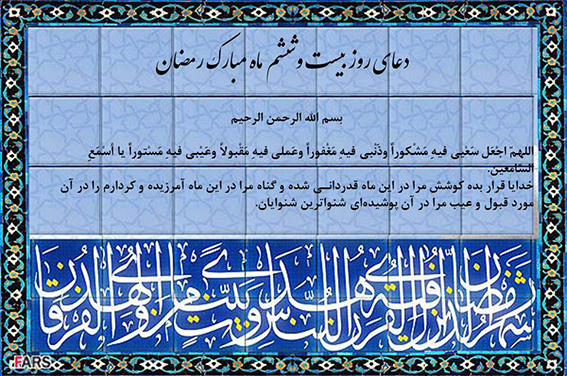 دعای روز بیست و ششم ماه مبارک رمضان
بسم الله الرحمن الرحیم
اللهمّ اجْعَل سَعْیی فیهِ مَشْکوراً وذَنْبی فیهِ مَغْفوراً وعَملی فیهِ مَقْبولاً وعَیْبی فیهِ مَسْتوراً یا أسْمَعِ
السّامعین.
خدایا قرار بده کوشش مرا در این ماه قدردانی شده و گناه مرا در این ماه آمرزیده و کردارم را در آن
مورد قبول و عیب مرا در آن پوشیده‌ای شنواترین شنوایان.
شهر رمضان الذی انزل فیه القرآن هدی للناس و بینت من الهدی و الفرقان
FARS